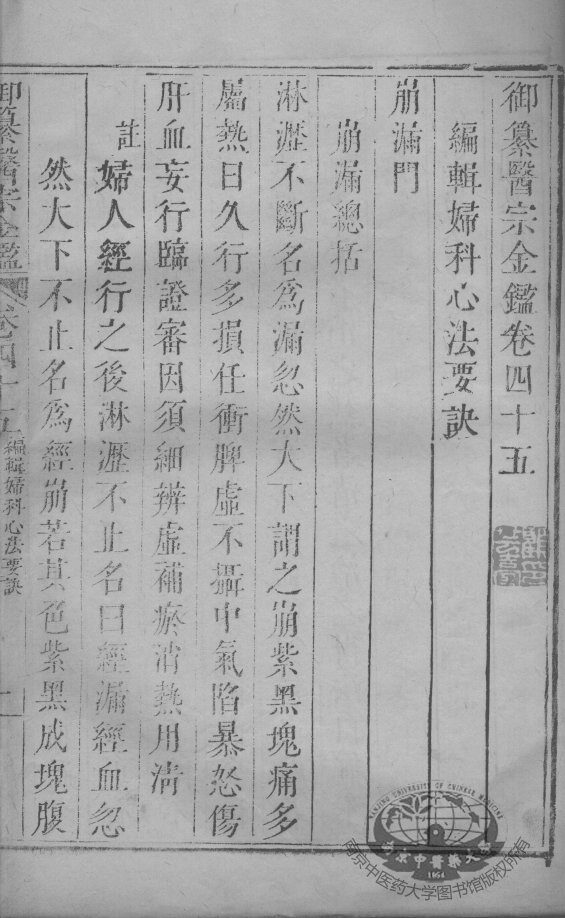 御纂醫宗金鑑卷四十五
編輯婦科心法要訣
崩漏門
崩漏總括
淋瀝不斷名爲漏忽然大下謂之崩紫黑塊痛多
屬熱日久行多損任衝脾虛不攝中氣陷暴怒傷
肝血妄行臨證審因須細辨虛補瘀消熱用清
註婦人經行之後淋瀝不止名曰經漏經血忽
然大下不止名爲經崩若其色紫黑成塊腹
御纂醫宗金鑑 卷四十五 編輯婦科心法要訣 一
NANJING UNIVERSITY OF CHINESE MEDICINE
南京中醫藥大學
1954
南京中医药大学图书馆版权所有